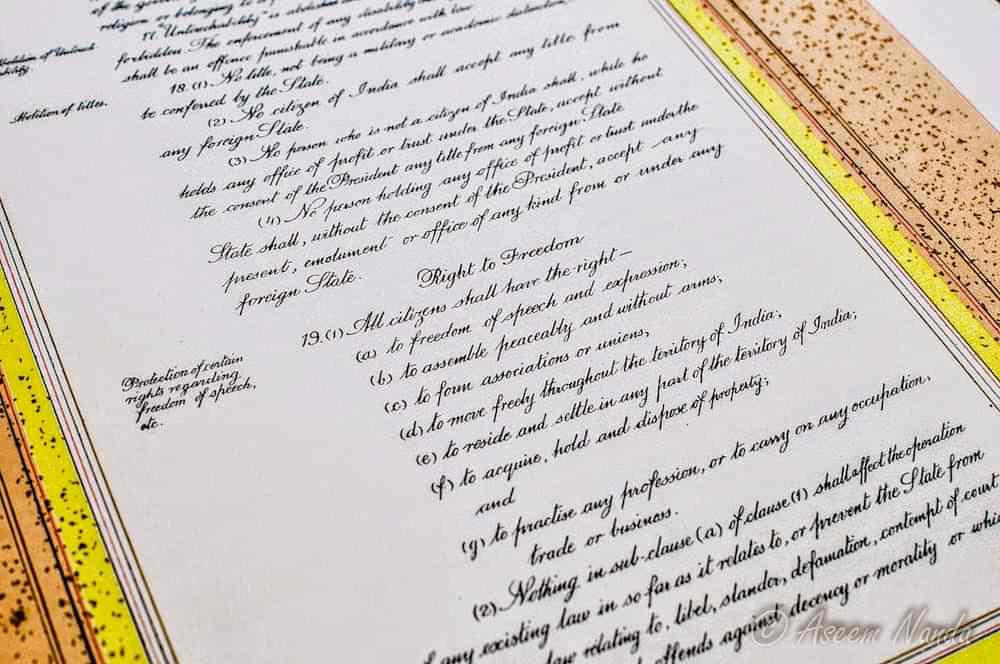 religion or belonging to a
17. "Untouchability" is abolished and
forbidden. The enforcement of any disability
shall be an offence punishable in accordance with law.
Abolition of titles.
18. (1) No title, not being a military or academic distinction,
be conferred by the State.
(2) No citizen of India shall accept any title from
any foreign State.
(3) No person who is not a citizen of India shall, while he
holds any office of profit or trust under the State, accept without
the consent of the President any title from any foreign State.
(4) No person holding any office of profit or trust under the
State shall, without the consent of the President, accept any
present, emolument or office of any kind from or under any
foreign State.
Right to Freedom
Protection of certain
rights regarding
freedom of speech,
etc.
19. (1) All citizens shall have the right—
(a) to freedom of speech and expression;
(b) to assemble peaceably and without arms;
(c) to form associations or unions;
(d) to move freely throughout the territory of India;
(e) to reside and settle in any part of the territory of India;
(f) to acquire, hold and dispose of property;
and
(g) to practise any profession, or to carry on any occupation,
trade or business.
(2) Nothing in sub-clause (a) of clause (1) shall affect the operation
of any existing law in so far as it relates to, or prevent the State from
law relating to, libel, slander, defamation, contempt of court
offends against decency or morality or
© Aseem Nanda